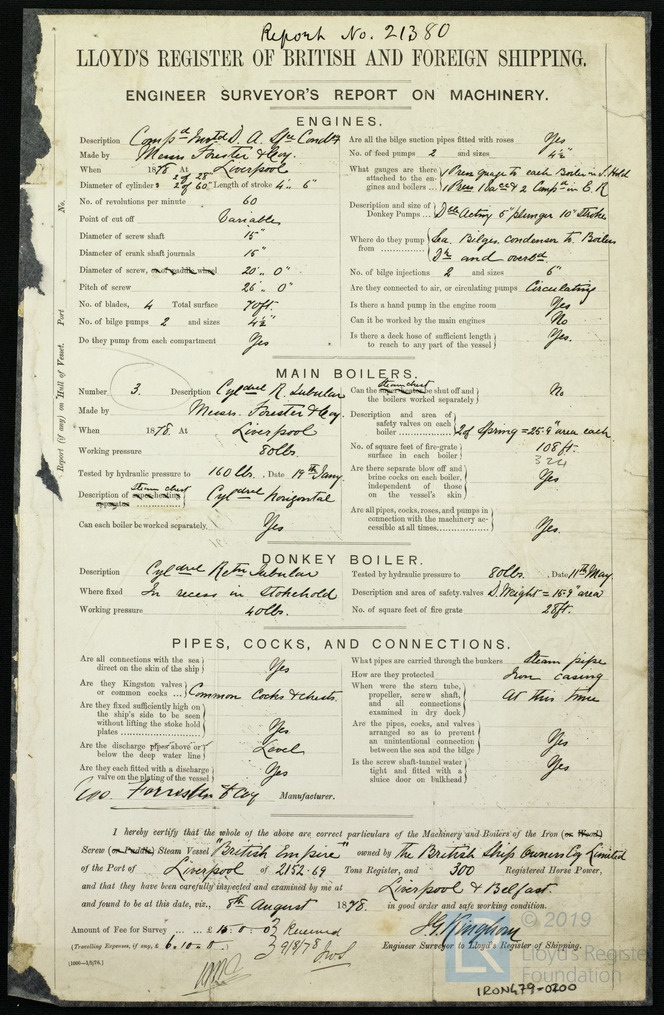 Report No. 21380
LLOYD'S REGISTER OF BRITISH AND FOREIGN SHIPPING.
ENGINEER SURVEYOR'S REPORT ON MACHINERY.
ENGINES.
Description Compd Invtd D. A. Sfce Condg
Made by Messrs Forester & Coy.
When 1878 At Liverpool
Diameter of cylinders 2 of 28" 2 of 60" Length of stroke 4' 6"
No. of revolutions per minute 60
Point of cut off Variable
Diameter of screw shaft 15"
Diameter of crank shaft journals 15"
Diameter of screw, or of paddle wheel 20' 0"
Pitch of screw 26' 0"
No. of blades, 4 Total surface 70 ft.
No. of bilge pumps 2 and sizes 4½"
Do they pump from each compartment Yes
Are all the bilge suction pipes fitted with roses Yes
No. of feed pumps 2 and sizes 4½"
What gauges are there attached to the engines and boilers ... Press guage to each Boiler in S. Hold
1 Press 1 Vacc & 2 Compd in E. R
Description and size of Donkey Pumps ... Dble Acting 6" plunger 10" stroke
Where do they pump from Sea, Bilges, condenser to Boilers
Dk and overbd.
No. of bilge injections 2 and sizes 6"
Are they connected to air, or circulating pumps Circulating
Is there a hand pump in the engine room Yes
Can it be worked by the main engines No
Is there a deck hose of sufficient length to reach to any part of the vessel Yes.
Report (if any) on Hull of Vessel. Port No.
MAIN BOILERS.
Number 3. Description Cyldrcl R. Tubular
Made by Messrs. Forester & Coy.
When 1878. At Liverpool
Working pressure 80lbs.
Tested by hydraulic pressure to 160 lbs. Date 19th Jany.
Description of superheating apparatus steam chest Cyldrcl horizontal
Can each boiler be worked separately. Yes
Can the superheater steam chest be shut off and the boilers worked separately No
Description and area of safety valves on each boiler 2 of Spring = 25.9" area each
No. of square feet of fire-grate surface in each boiler 108 ft.
324
Are there separate blow off and brine cocks on each boiler, independent of those on the vessel's skin Yes
Are all pipes, cocks, roses, and pumps in connection with the machinery accessible at all times Yes.
DONKEY BOILER.
Description Cyldrcl Retn Tubular
Where fixed In recess in stokehold
Working pressure 40lbs.
Tested by hydraulic pressure to 80lbs. Date 11th May.
Description and area of safety valves D. Weight = 15.9" area
No. of square feet of fire grate 28ft.
PIPES, COCKS, AND CONNECTIONS.
Are all connections with the sea direct on the skin of the ship Yes
Are they Kingston valves or common cocks ... Common Cocks & chests
Are they fixed sufficiently high on the ship's side to be seen without lifting the stoke hold plates Yes
Are the discharge pipes above or below the deep water line Level
Are they each fitted with a discharge valve on the plating of the vessel Yes
What pipes are carried through the bunkers Steam pipe
How are they protected Iron casing
When were the stern tube, propeller, screw shaft, and all connections examined in dry dock At this time
Are the pipes, cocks, and valves arranged so as to prevent an unintentional connection between the sea and the bilge Yes
Is the screw shaft-tunnel water tight and fitted with a sluice door on bulkhead Yes
Geo. Forrester & Coy Manufacturer.
I hereby certify that the whole of the above are correct particulars of the Machinery and Boilers of the Iron (or Wood)
Screw (or Paddle) Steam Vessel "British Empire" owned by The British Ship Owners Coy Limited
of the Port of Liverpool of 2152.69 Tons Register, and 300 Registered Horse Power,
and that they have been carefully inspected and examined by me at Liverpool & Belfast
and found to be at this date, viz., 8th August 1878. in good order and safe working condition.
Amount of Fee for Survey ... £ 15. 0. 0 Received
(Travelling Expenses, if any, £ 6. 10. 0. 9/8/78
J.G. Kingham
Engineer Surveyor to Lloyd's Register of Shipping.
© 2019
LR
Lloyd's Register
Foundation
IRON479-0200